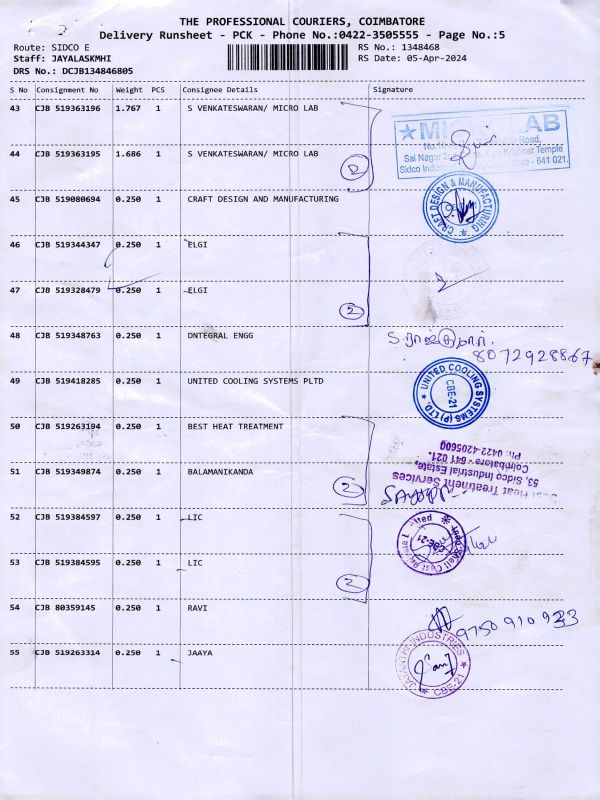 THE PROFESSIONAL COURIERS, COIMBATORE
Delivery Runsheet - PCK - Phone No.:0422-3505555 - Page No.:5
Route: SIDCO E
RS No.: 1348468
Staff: JAYALASKMHI
RS Date: 05-Apr-2024
DRS No.: DCJB134846805
S No Consignment No Weight PCS Consignee Details Signature
43 CJB 519363196 1.767 1 S VENKATESWARAN/ MICRO LAB
44 CJB 519363195 1.686 1 S VENKATESWARAN/ MICRO LAB
2
LAB
Road,
Sai Nagar Temple
Sidco Indus - 641 021.
45 CJB 519080694 0.250 1 CRAFT DESIGN AND MANUFACTURING
CRAFT DESIGN & MANUFACTURING
46 CJB 519344347 0.250 1 ELGI
47 CJB 519328479 0.250 1 ELGI
2
48 CJB 519348763 0.250 1 DNTEGRAL ENGG
S.ராஜ்குமார்.
8072928867
49 CJB 519418285 0.250 1 UNITED COOLING SYSTEMS PLTD
UNITED COOLING SYSTEMS (P) LTD.
CBE-21
50 CJB 519263194 0.250 1 BEST HEAT TREATMENT
51 CJB 519349874 0.250 1 BALAMANIKANDA
2
Heat Treatment Services
53, Sidco Industrial Estate,
Coimbatore - 641 021.
Ph: 0422-4205600
52 CJB 519384597 0.250 1 LIC
53 CJB 519384595 0.250 1 LIC
2
CBE-21
54 CJB 80359145 0.250 1 RAVI
9750910933
55 CJB 519263314 0.250 1 JAAYA
JAYANTHI INDUSTRIES
CBE-21